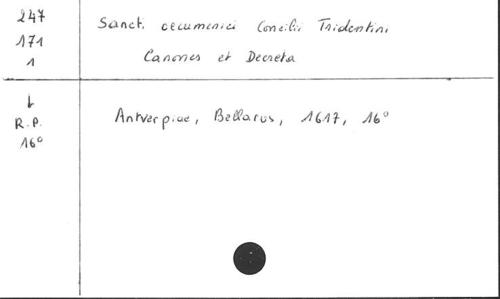 247
171
1
Sanct. oecumenici Concilii Tridentini
Canones et Decreta
↓
R.P.
16°
Antverpiae, Bellarus, 1617, 16°